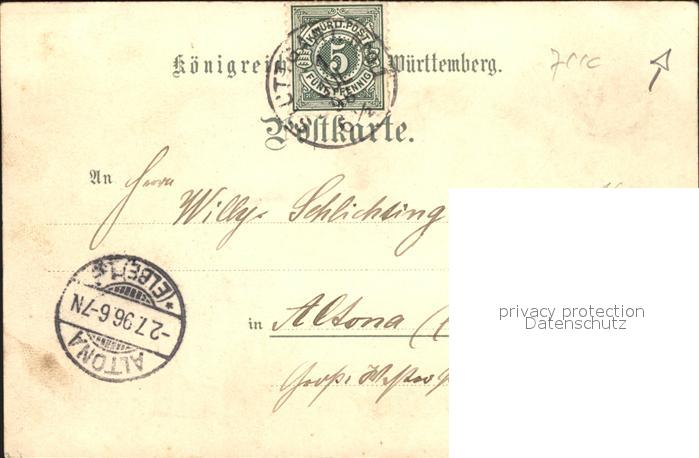 K. WÜRTT. POST
5
FÜNF PFENNIG
Königreich Württemberg.
Postkarte.
An Herrn
Willy Schlichting
in Altona (
Große
ALTONA
-2.7.96.6-7N
*(ELBE)1*
privacy protection
Datenschutz